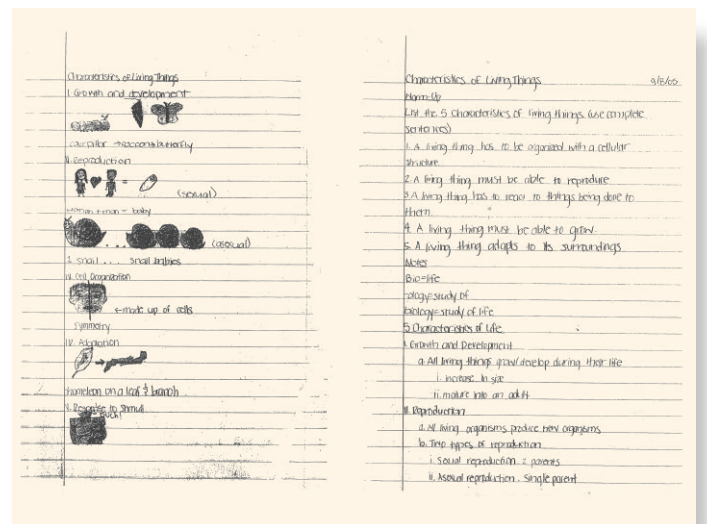 Characteristics of Living Things
I. Growth and development
caterpillar → cocoon → butterfly
II. Reproduction
(sexual)
woman + man = baby
(asexual)
1 snail ... snail babies
Cell Organization
← made up of cells
symmetry
IV. Adaption
on a leaf & branch
V. Response to Stimuli
ouch!
Characteristics of Living Things
Warm-Up
List the 5 characteristics of living things (use complete
sentences)
1. A living thing has to be organized with a cellular
structure
2. A living thing must be able to reproduce
3. A living thing has to react to things being done to
them.
4. A living thing must be able to grow.
5. A living thing adapts to its surroundings
Notes
Bio=life
-ology=study of
biology=study of life
5 Characteristics of Life
I. Growth and Development
a. All living things grow/develop during their life
i. increase in size
ii. mature into an adult
II. Reproduction
a. All living organisms produce new organisms
b. Two types of reproduction
i. Sexual reproduction: 2 parents
ii. Asexual reproduction. Single parent